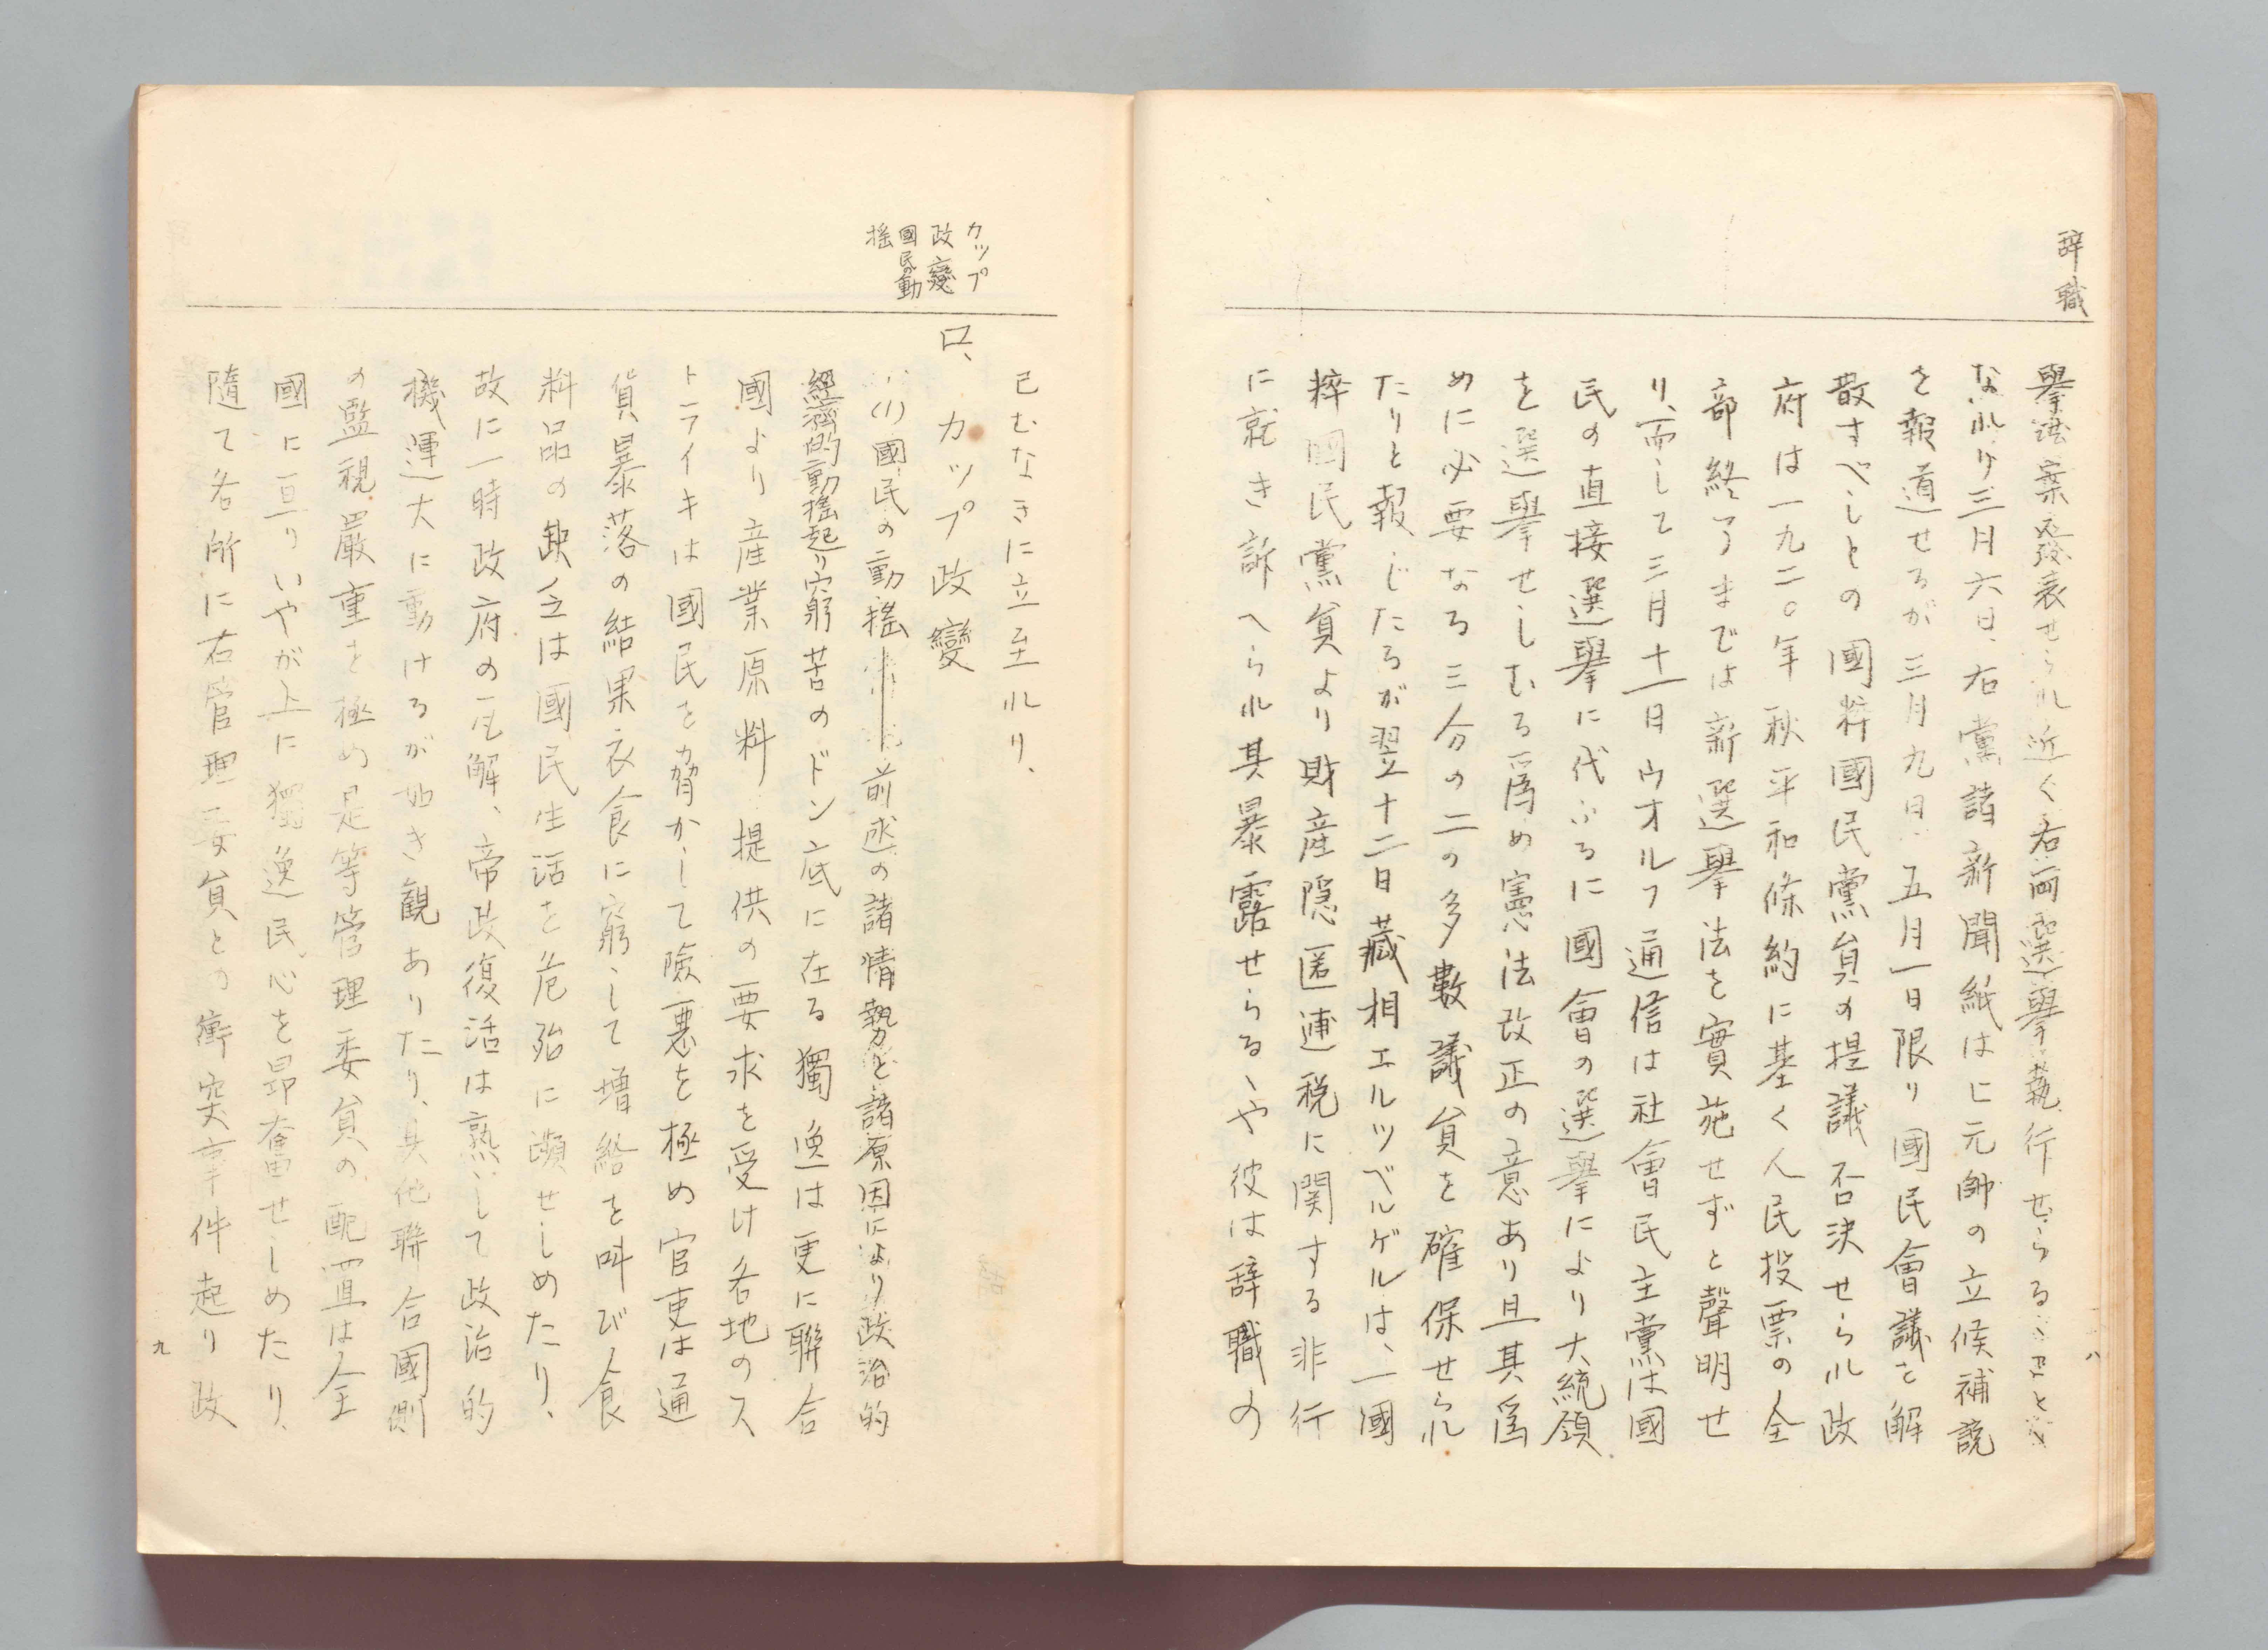 辞職
擧法案發表せられ近く右両選擧執行せらるゝこと
なれり、三月六日、右黨諸新聞紙はヒ元帥の立候補説
を報道せるが三月九日、五月一日限り國民會議を解
散すべしとの國粹國民黨員の提議否決せられ政
府は一九二〇年秋平和條約に基く人民投票の全
部終了までは新選擧法を實施せずと聲明せ
り、而して三月十一日ウオルフ通信は社會民主黨は國
民の直接選擧に代ふるに國會の選擧により大統領
を選擧せしむる爲め憲法改正の意あり且其爲
めに必要なる三分の二の多數議員を確保せられ
たりと報じたるが翌十二日藏相エルツベルゲルは、一國
粹國民黨員より財産隠匿逋税に関する非行
に就き訴へられ其暴露せらるゝや彼は辞職の
八
カップ
政變
國民の動
搖
已むなきに立至れり、
ロ、カップ政變
(1)國民の動搖 前述の諸情勢と諸原因により政治的
經濟的動搖起り窮苦のドン底に在る獨逸は更に聯合
國より産業原料提供の要求を受け各地のス
トライキは國民を脅かして險悪を極め官吏は通
貨暴落の結果衣食に窮して増給を叫び食
料品の缺乏は國民生活を危殆に瀕せしめたり、
故に一時政府の瓦解、帝政復活は熟して政治的
機運大に動けるが如き観ありたり、其他聯合國側
の監視嚴重を極め是等管理委員の配置は全
國に亘りいやが上に獨逸民心を昻奮せしめたり、
隨て各所に右管理委員との衝突事件起り政
九